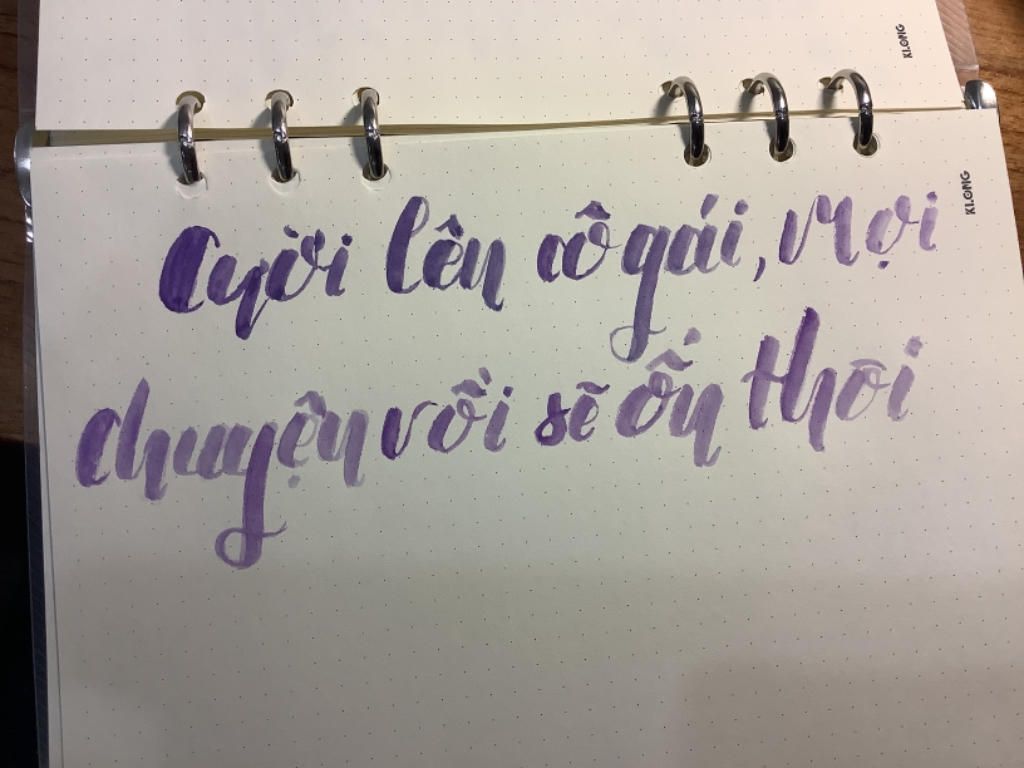 KLONG
KLONG
Cười lên cô gái, Mọi
chuyện rồi sẽ ổn thôi